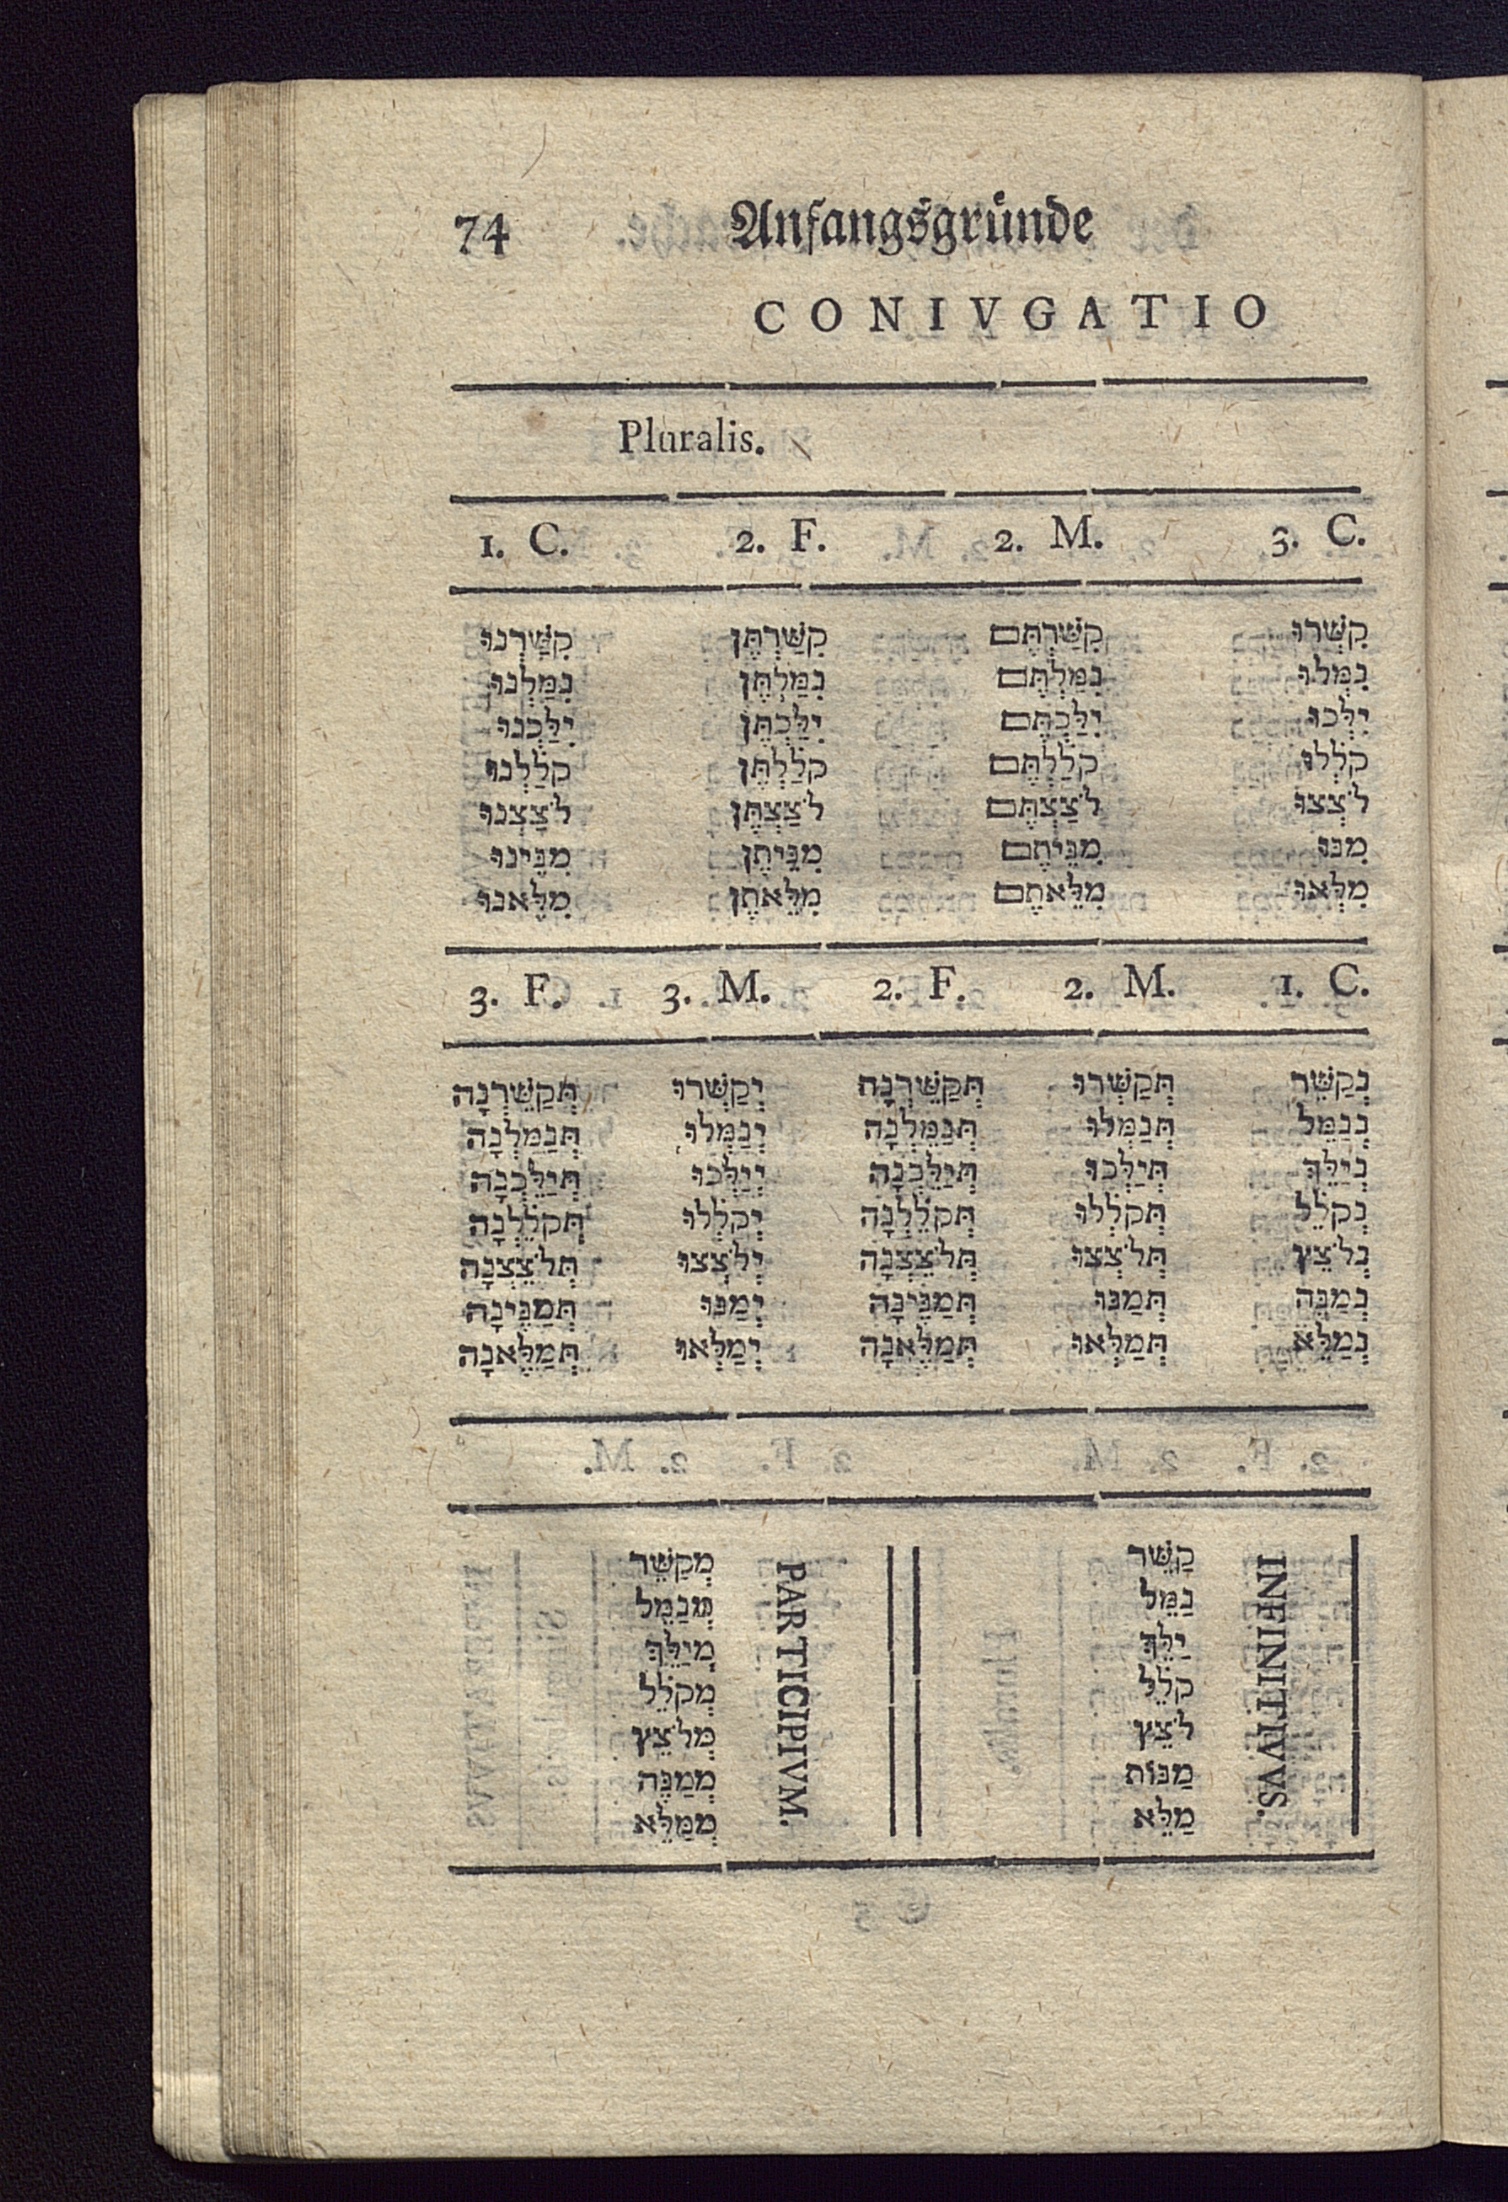 74 Anfangsgründe
CONIVGATIO
Pluralis.
1. C. 2. F. 2. M. 3. C.
קִשַּׁרְנוּ קִשַּׁרְתֶּן קִשַּׁרְתֶּם קִשְּׁרוּ
נִמַּלְנוּ נִמַּלְתֶּן נִמַּלְתֶּם נִמְּלוּ
יִלַּכְנוּ יִלַּכְתֶּן יִלַּכְתֶּם יִלְּכוּ
קֹלַלְנוּ קֹלַלְתֶּן קֹלַלְתֶּם קֹלְלוּ
לֹצַצְנוּ לֹצַצְתֶּן לֹצַצְתֶּם לֹצְצוּ
מִנֵּינוּ מִנֵּיתֶן מִנֵּיתֶם מִנּוּ
מִלֵּאנוּ מִלֵּאתֶן מִלֵּאתֶם מִלְּאוּ
3. F. 3. M. 2. F. 2. M. 1. C.
תְּקַשֵּׁרְנָה יְקַשְּׁרוּ תְּקַשֵּׁרְנָה תְּקַשְּׁרוּ נְקַשֵּׁר
תְּנַמֵּלְנָה יְנַמְּלוּ תְּנַמֵּלְנָה תְּנַמְּלוּ נְנַמֵּל
תְּיַלֵּכְנָה יְיַלְּכוּ תְּיַלֵּכְנָה תְּיַלְּכוּ נְיַלֵּךְ
תְּקֹלֵלְנָה יְקֹלְלוּ תְּקֹלֵלְנָה תְּקֹלְלוּ נְקֹלֵל
תְּלֹצֵצְנָה יְלֹצְצוּ תְּלֹצֵצְנָה תְּלֹצְצוּ נְלֹצֵץ
תְּמַנֶּינָה יְמַנּוּ תְּמַנֶּינָה תְּמַנּוּ נְמַנֶּה
תְּמַלֶּאנָה יְמַלְּאוּ תְּמַלֶּאנָה תְּמַלְּאוּ נְמַלֵּא
INFINITIVVS.
קַשֵּׁר
נַמֵּל
יַלֵּךְ
קֹלֵל
לֹצֵץ
מַנּוֹת
מַלֵּא
PARTICIPIVM.
מְקַשֵּׁר
מְנַמֵּל
מְיַלֵּךְ
מְקֹלֵל
מְלֹצֵץ
מְמַנֶּה
מְמַלֵּא